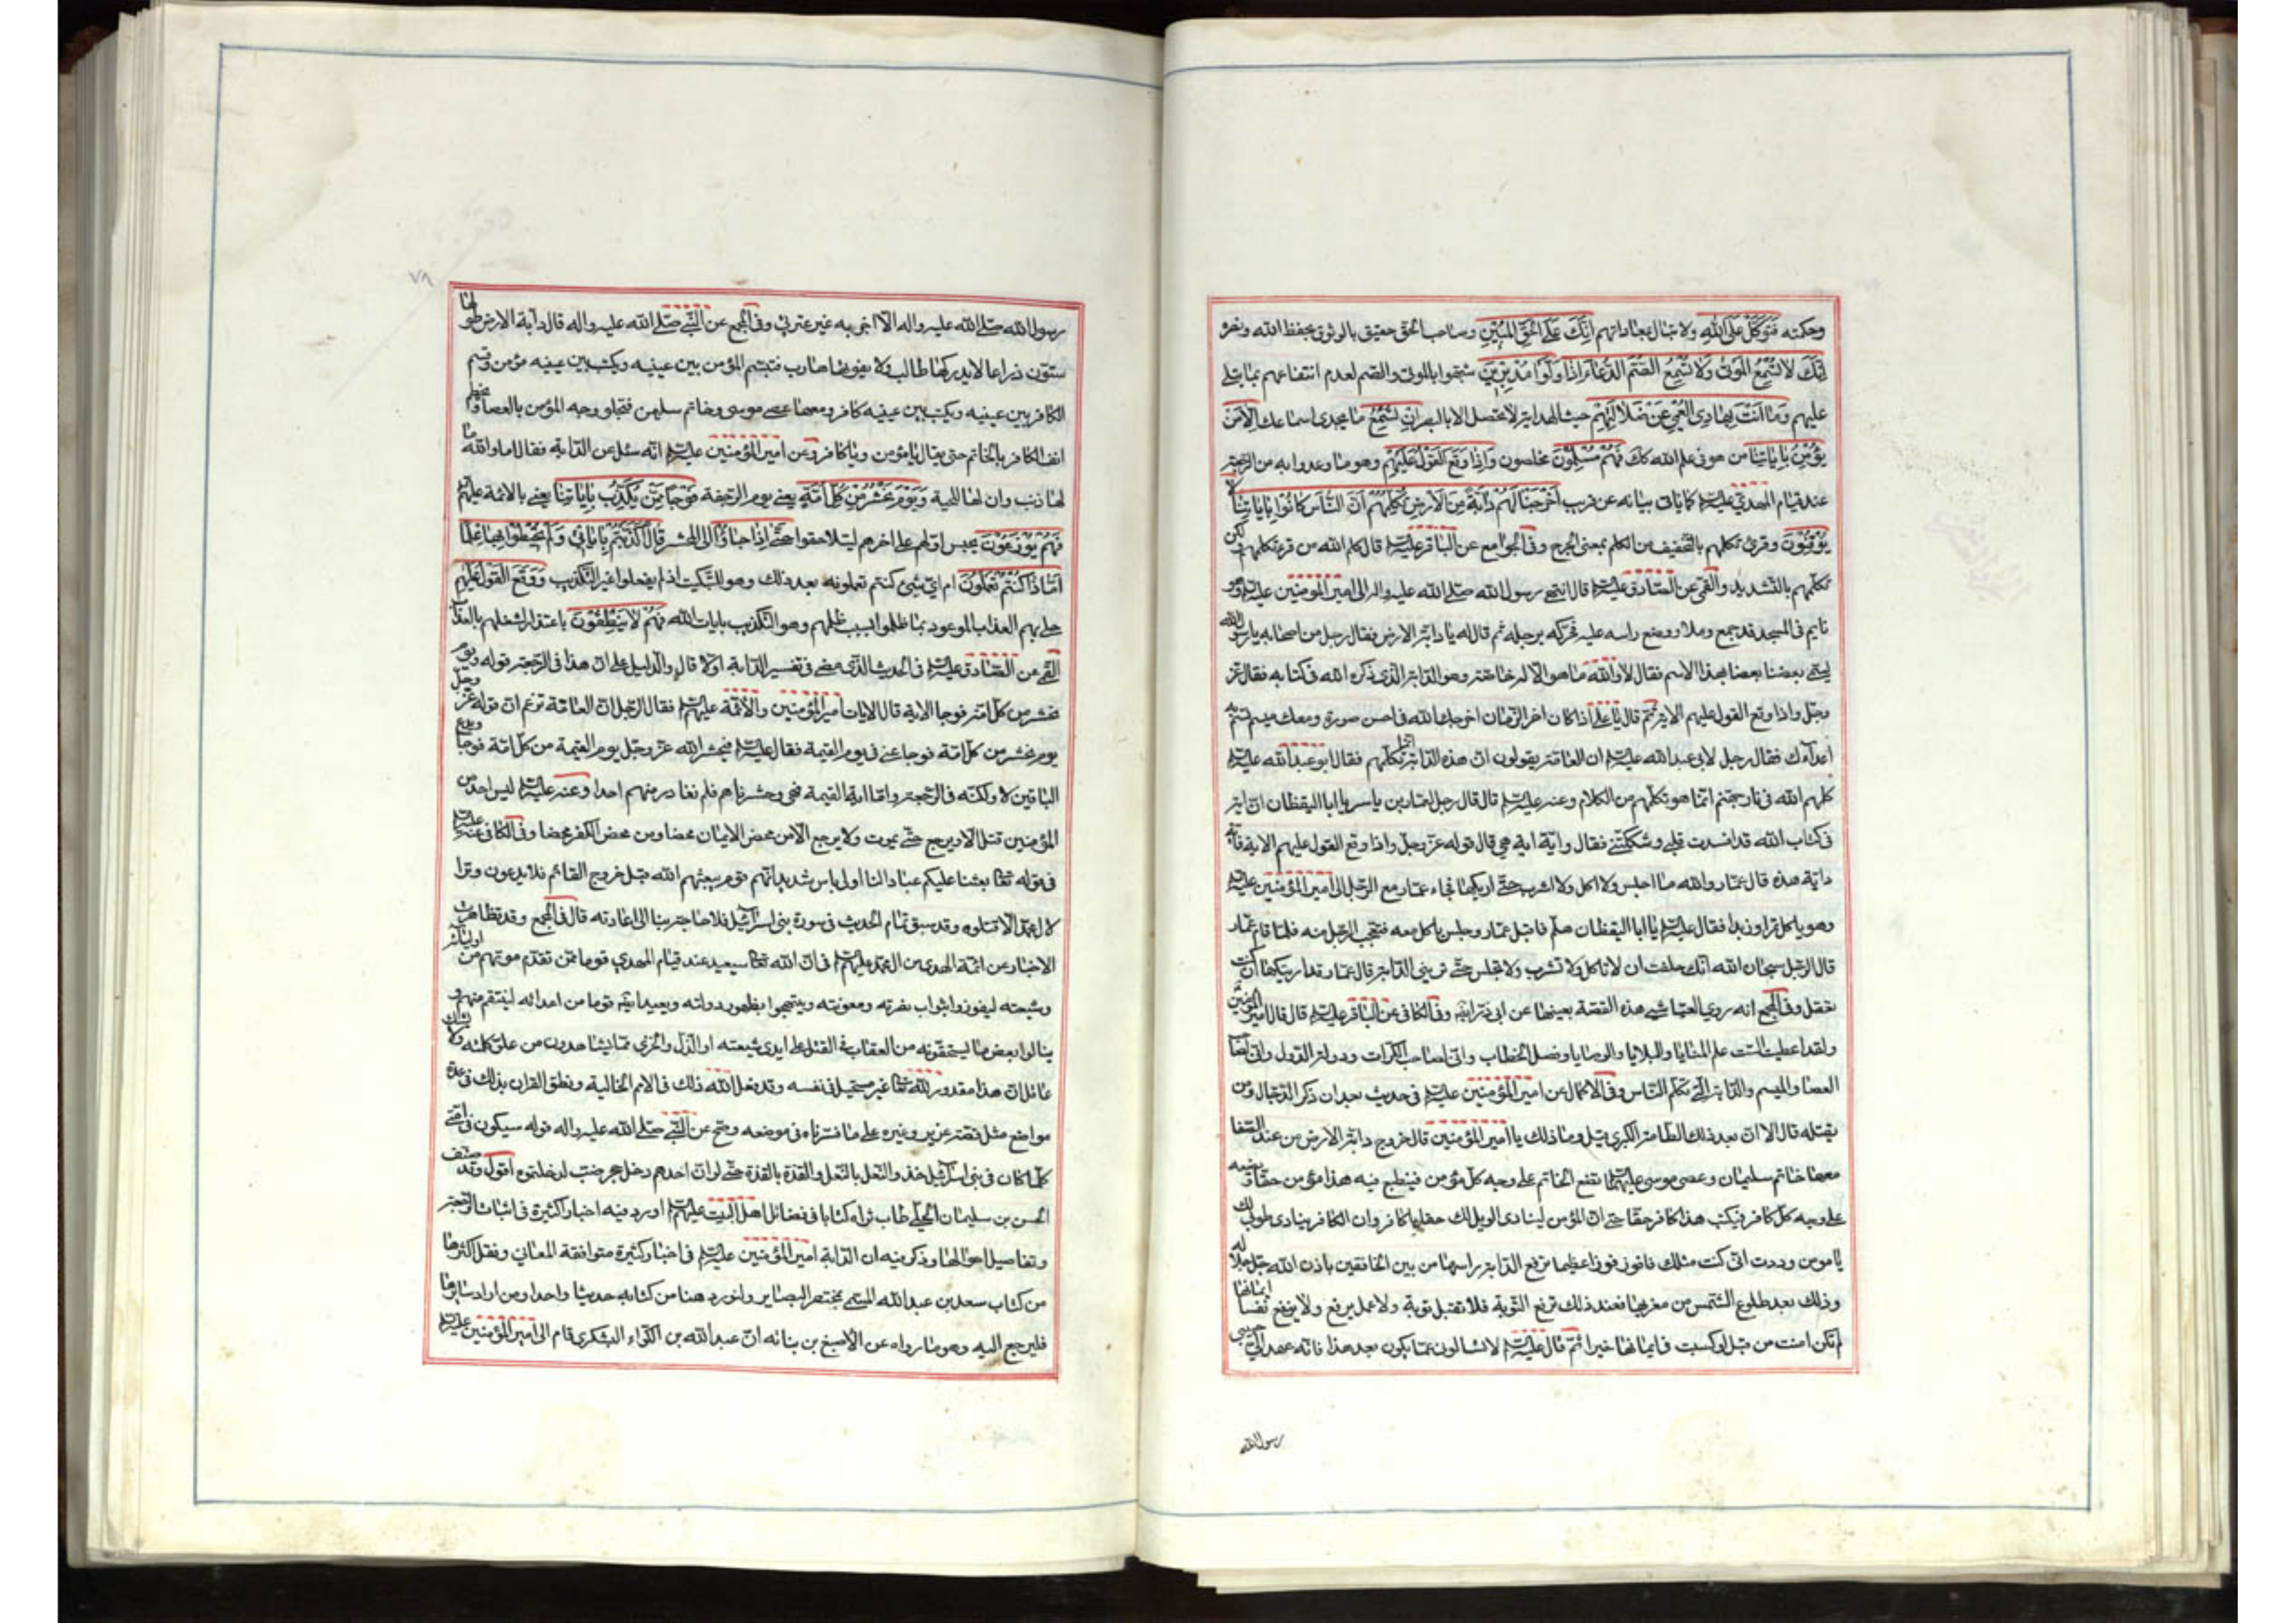 وحكمته فَتَوَكَّلْ عَلَى اللهِ ولا تبال بمعاداتهم اِنَّكَ عَلَى الْحَقِّ الْمُبِيْنِ وصاحب الحق حقيق بالوثوق بحفظ الله ونصره
اِنَّكَ لا تُسْمِعُ الْمَوْتىٰ وَلا تُسْمِعُ الصُّمَّ الدُّعَاءَ اِذَا وَلَّوْا مُدْبِرِيْنَ شبّهوا بالموتى والصّم لعدم انتفاعهم بما يتلى
عليهم وَمَا اَنْتَ بِهَادِى الْعُمْىِ عَنْ ضَلالَتِهِمْ حيث الهداية لا تحصل الا بالبصر اِنْ تُسْمِعُ ما يجدى اسماعك اِلاّ مَنْ
يُؤْمِنُ بِاٰيَاتِنَا من هو فى علم الله كك فَهُمْ مُسْلِمُوْنَ مخلصون وَاِذَا وَقَعَ الْقَوْلُ عَلَيْهِمْ وهو ما وعدوا به من الرّجعة
عند قيام المهدى عليه السلام كما ياتى بيانه عن قريب اَخْرَجْنَا لَهُمْ دَابَّةً مِنَ الْاَرْضِ تُكَلِّمُهُمْ اَنَّ النَّاسَ كَانُوا بِاٰيَاتِنَا لا
يُوْقِنُوْنَ وقرئ تكلمهم بالتخفيف من الكلم بمعنى الجرح وفى الجوامع عن الباقر عليه السلام قال كلم الله من قرء تكلمهم ولكن
تكلّمهم بالتشديد والقمى عن الصّادق عليه السلام قال انتهى رسول الله صلى الله عليه واله الى امير المؤمنين عليه السلام وهو
نايم فى المسجد قد جمع رملا ووضع راسه عليه فحرّكه برجله ثم قال له يا دابّة الارض فقال رجل من اصحابه يا رسول الله
ايسمّى بعضنا بعضا بهذا الاسم فقال لا والله ما هو الا له خاصّة وهو الدّابة الذى ذكره الله فى كتابه فقال عزّ
وجلّ واذا وقع القول عليهم الاية ثم قال يا على اذا كان اخر الزّمان اخرجك الله فى احسن صورة ومعك ميسم تسم به
اعداءك فقال رجل لابى عبد الله عليه السلام ان العامّة يقولون انّ هذه الدّابة انما تكلّمهم فقال ابو عبد الله عليه السلام
كلمهم الله فى نار جهنم انّما هو تكلّمهم من الكلام وعنه عليه السلام قال قال رجل لعمّار بن ياسر يا ابا اليقظان انّ اية
فى كتاب الله قد افسدت قلبى وشكّكتنى فقال واية اية هى قال قوله عزّ وجلّ واذا وقع القول عليهم الاية فاية
دابة هذه قال عمّار والله ما اجلس ولا اكل ولا اشرب حتّى اريكها فجاء عمّار مع الرّجل الى امير المؤمنين عليه السلام
وهو ياكل تمرا وزبدا فقال عليه السلام يا ابا اليقظان هلم فاقبل عمّار وجلس ياكل معه فتعجّب الرّجل منه فلمّا قام عمّار
قال الرّجل سبحان الله انّك حلفت ان لا تاكل ولا تشرب ولا تجلس حتّى ترينى الدّابة قال عمّار قد اريتكها ان كنت
تعقل وفى المجمع انه روى العيّاشى هذه القصّة بعينها عن ابى ذرّ ايضا وفى الكافى عن الباقر عليه السلام قال قال امير المؤمنين
ولقد اعطيت الست علم المنايا والبلايا والوصايا وفصل الخطاب وانّى لصاحب الكرّات ودولة الدّول وانّى لصاحب
العصا والميسم والدّابة الّتى تكلّم النّاس وفى الاكمال عن امير المؤمنين عليه السلام فى حديث بعد ان ذكر الدّجال ومن
يقتله قال الا انّ بعد ذلك الطامّة الكبرى قيل وما ذلك يا امير المؤمنين قال خروج دابة الارض من عند الصّفا
معها خاتم سليمان وعصى موسى عليهما السلام تضع الخاتم على وجه كلّ مؤمن فينطبع فيه هذا مؤمن حقّا وتضعه
على وجه كلّ كافر فيكتب هذا كافر حقّا حتى انّ المؤمن لينادى الويل لك حقا يا كافر وان الكافر ينادى طوبى لك
يا مومن وددت انّى كنت مثلك فافوز فوزا عظيما ترفع الدّابة راسها من بين الخافقين باذن الله جلّ جلاله
وذلك بعد طلوع الشّمس من مغربها فعند ذلك ترفع التّوبة فلا تقبل توبة ولا عمل يرفع ولا ينفع نفسا ايمانها
لم تكن امنت من قبل او كسبت فى ايمانها خيرا ثم قال عليه السلام لا تسالون عمّا يكون بعد هذا فانّه عهد الىّ حبيبى
رسول الله
٧٨
رسول الله صلّى الله عليه واله الاّ اخبر به غير عترتى وفى المجمع عن النّبى صلّى الله عليه واله قال دابة الارض طولها
ستّون ذراعا لا يدركها طالب ولا يفوتها هارب فتسم المؤمن بين عينيه ويكتب بين عينيه مؤمن وتسم
الكافر بين عينيه ويكتب بين عينيه كافر ومعها عصى موسى وخاتم سليمن فتجلو وجه المؤمن بالعصا وتخطم
انف الكافر بالخاتم حتى يقال يا مؤمن ويا كافر وعن امير المؤمنين عليه السلام انّه سئل عن الدّابة فقال اما والله ما
لها ذنب وان لها للحية وَيَوْمَ نَحْشُرُ مِنْ كُلِّ اُمَّةٍ يعنى يوم الرّجعة فَوْجًا مِمَّنْ يُكَذِّبُ بِاٰيَاتِنَا يعنى بالائمة عليهم السلام
فَهُمْ يُوْزَعُوْنَ يحبس اوّلهم على اخرهم ليتلاحقوا حَتّىٰ اِذَا جَاؤُا الى المحشر قَالَ اَكَذَّبْتُمْ بِاٰيَاتِىْ وَلَمْ تُحِيْطُوْا بِهَا عِلْمًا
اَمَّاذَا كُنْتُمْ تَعْمَلُوْنَ ام اىّ شىء كنتم تعملونه بعد ذلك وهو للتّبكيت اذ لم يفعلوا غير التكذيب وَوَقَعَ الْقَوْلُ عَلَيْهِمْ
حلّ بهم العذاب الموعود بما ظلموا بسبب ظلمهم وهو التكذيب بايات الله فَهُمْ لا يَنْطِقُوْنَ باعتذار لشغلهم بالعذاب
القمى عن الصّادق عليه السلام فى الحديث الذى مضى فى تفسير الدّابة اوّلا قال والدّليل على انّ هذا فى الرّجعة قوله ويوم
نحشر من كلّ امّة فوجا الاية قال الايات امير المؤمنين والائمّة عليهم السلام فقال الرّجل انّ العامّة تزعم انّ قوله عزّ وجلّ
يوم نحشر من كلّ امّة فوجا عنى فى يوم القيمة فقال عليه السلام فيحشر الله عزّ وجلّ يوم القيمة من كلّ امّة فوجا ويدع
الباقين لا ولكنّه فى الرّجعة وامّا اية القيمة فهى وحشرناهم فلم نغادر منهم احدا وعنه عليه السلام ليس احد من
المؤمنين قتل الا ويرجع حتّى يموت ولا يرجع الا من محض الايمان محضا ومن محض الكفر محضا وفى الكافى عنه عليه السلام
فى قوله تعالى بعثنا عليكم عبادا لنا اولى باس شديد انّهم قوم يبعثهم الله قبل خروج القائم فلا يدعون وترا
لال محمّد الا قتلوه وقد سبق تمام الحديث فى سورة بنى اسرائيل فلا حاجة بنا الى اعادته قال فى المجمع وقد تظاهرت
الاخبار عن ائمّة الهدى من ال محمّد عليهم السلام فى انّ الله تعالى سيعيد عند قيام المهدى قوما ممّن تقدّم موتهم من اوليائه
وشيعته ليفوزوا بثواب نصرته ومعونته ويبتهجوا بظهور دولته ويعيد ايضا قوما من اعدائه لينتقم منهم و
ينالوا بعض ما يستحقّونه من العقاب فى القتل على ايدى شيعته او الذّل والخزى بما يشاهدون من علوّ كلمته ولا يشك
عاقل انّ هذا مقدور لله تعالى غير مستحيل فى نفسه وقد فعل الله ذلك فى الامم الخالية ونطق القران بذلك فى عدّة
مواضع مثل قصّة عزير وغيره على ما فسّرناه فى موضعه وصحّ عن النّبى صلّى الله عليه واله قوله سيكون فى امّتى
كلّما كان فى بنى اسرائيل حذو النّعل بالنّعل والقذّة بالقذّة حتّى لو انّ احدهم دخل جحر ضبّ لدخلتموه اقول وقد صنّف
الحسن بن سليمان الحلّى طاب ثراه كتابا فى فضائل اهل البيت عليهم السلام اورد فيه اخبارا كثيرة فى اثبات الرّجعة
وتفاصيل احوالها وذكر فيه ان الدّابة امير المؤمنين عليه السلام فى اخبار كثيرة متوافقة المعانى ونقل اكثرها
من كتاب سعد بن عبد الله المسمّى بمختصر البصاير ولنورد هنا من كتابه حديثا واحدا ومن اراد سايرها
فليرجع اليه وهو ما رواه عن الاصبغ بن نباته انّ عبد الله بن الكوّاء اليشكرى قام الى امير المؤمنين عليه السلام